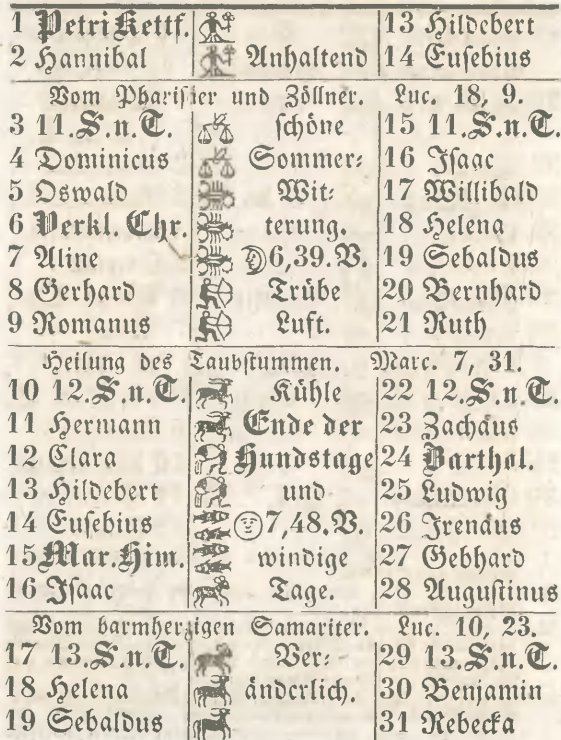 1 Petri Kettf. 13 Hildebert
2 Hannibal Anhaltend 14 Eusebius
Vom Pharisäer und Zöllner. Luc. 18, 9.
3 11. S. n. T. schöne 15 11. S. n. T.
4 Dominicus Sommer- 16 Isaac
5 Oswald Wit- 17 Willibald
6 Verkl. Chr. terung. 18 Helena
7 Aline 6,39. V. 19 Sebaldus
8 Gerhard Trübe 20 Bernhard
9 Romanus Luft. 21 Ruth
Heilung des Taubstummen. Marc. 7, 31.
10 12. S. n. T. Kühle 22 12. S. n. T.
11 Hermann Ende der 23 Zachäus
12 Clara Hundstage 24 Barthol.
13 Hildebert und 25 Ludwig
14 Eusebius 7,48. V. 26 Irenäus
15 Mar. Him. windige 27 Gebhard
16 Isaac Tage. 28 Augustinus
Vom barmherzigen Samariter. Luc. 10, 23.
17 13. S. n. T. Ver- 29 13. S. n. T.
18 Helena änderlich. 30 Benjamin
19 Sebaldus 31 Rebecka